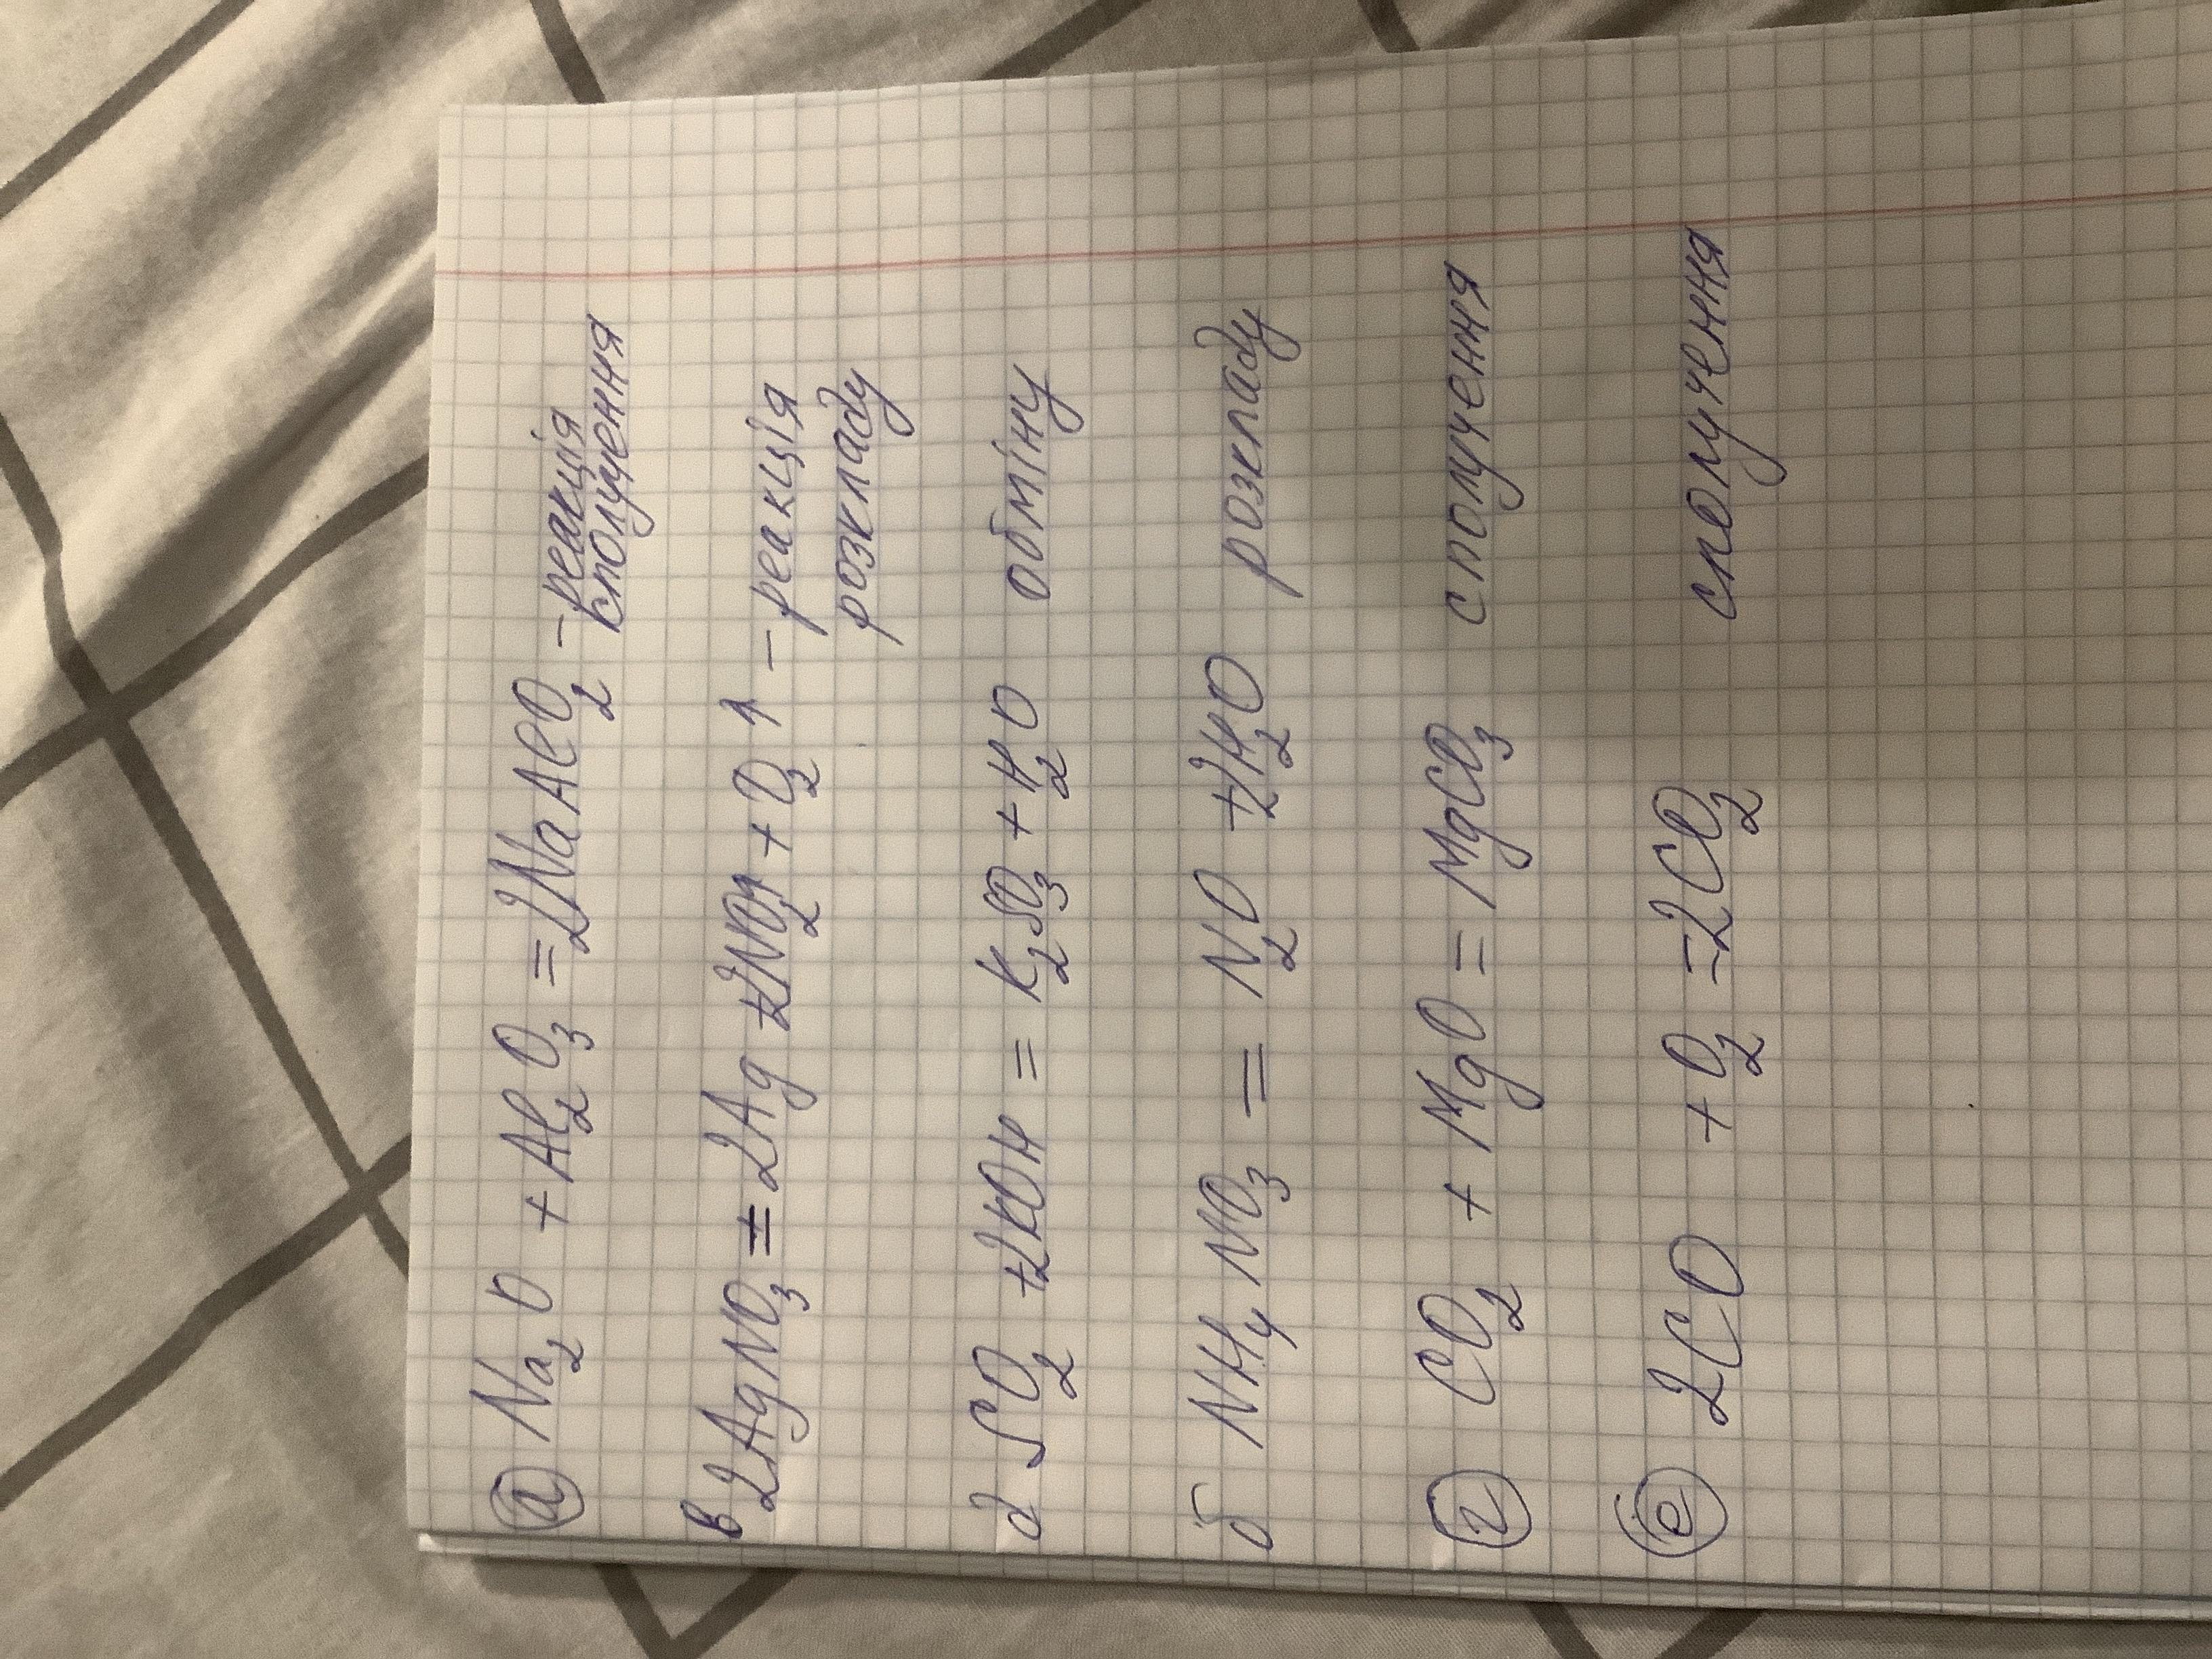 а Na₂O + Al₂O₃ = 2NaAlO₂ - реакція
сполучення
в 2AgNO₃ = 2Ag + 2NO₂↑ + O₂↑ - реакція
розкладу
д SO₂ + 2KOH = K₂SO₃ + H₂O обміну
б NH₄NO₃ = N₂O + 2H₂O розкладу
г CO₂ + MgO = MgCO₃ сполучення
е 2CO + O₂ = 2CO₂ сполучення